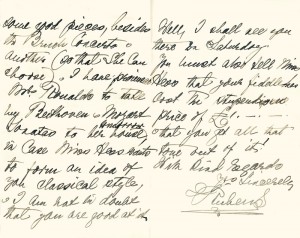 some good pieces, besides
the Bruch Concerto &
another (so that she can
choose). I have
Ronaldo to take
my Beethoven & Mozart
Sonatas to her house,
in case Miss wants
to form an idea of
you classical style,
I am not in doubt
that you are good at it.
Well, I shall see you
there on Saturday
You must also tell Miss
that your fiddle has
cost the
price of
that you get all that
tone out of it!
With kind regards
Yrs Sincerely